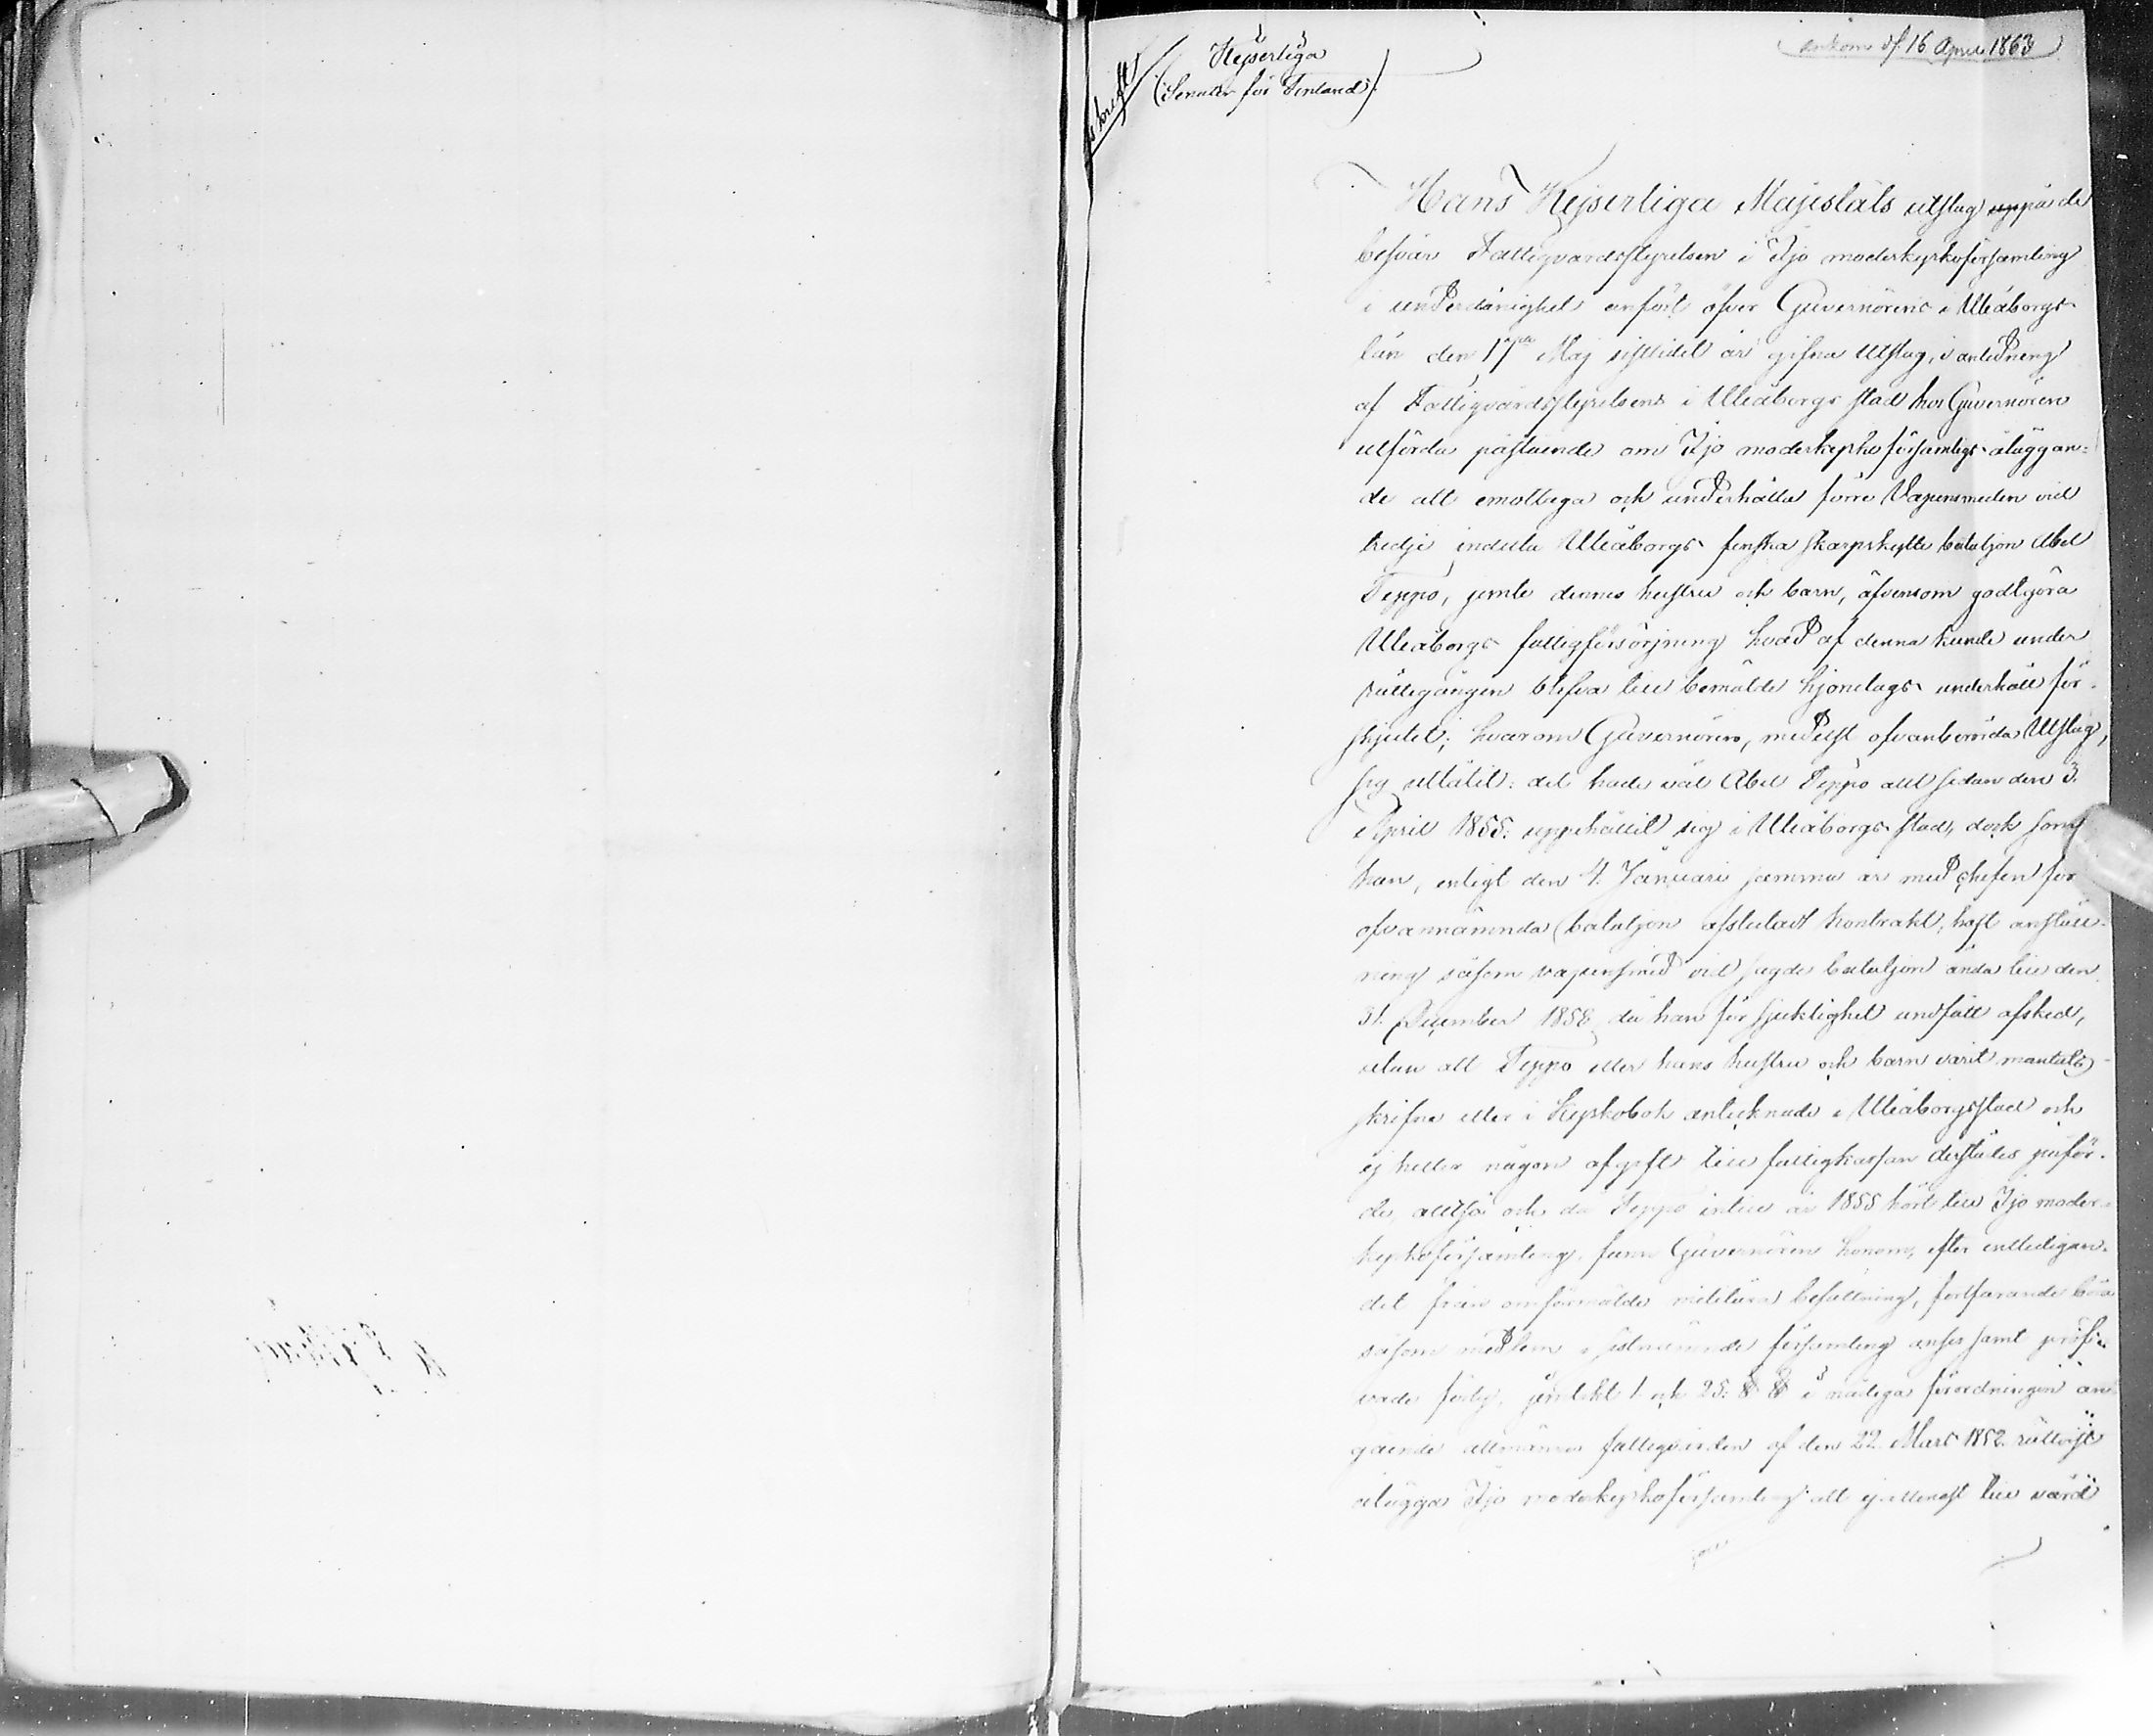 ankom d. 16 April 1863
Afskrift
Kejserliga
Senaten för Finland
Hans Kejserliga Majestäts utslag uppå de
besvär Fattigvårdsstyrelsen i Ijo moderkyrkoförsamling
i underdånighet anfört öfver Guvernörens i Uleåborgs
län den 17de Maj sistlidet år gifna Utslag, i anledning
af Fattigvårdsstyrelsens i Uleåborgs stad hos Guvernören
utförda påstående om Ijo moderkyrkoförsamlings åläggan-
de att emottaga och underhålla förre Vapensmeden vid
tredje indelta Uleåborgs finska skarpskytte bataljon Abel
Teppo, jemte dennes hustru och barn, äfvensom godtgöra
Uleåborgs fattigförsörjning hvad af denna kunde under
rättegången blifva till bemälde hjonelags underhåll för-
skjutet; hvarom Guvernören, medelst ofvanberörda Utslag,
sig utlåtit: det hade väl Abel Teppo allt sedan den 3.
April 1855. uppehållit sig i Uleåborgs stad, dock som
han, enligt den 4. Januari samma år med chefen för
ofvannämnda bataljon afslutadt kontrakt, haft anställ-
ning såsom vapensmed vid sagde bataljon ända till den
31. December 1858, då han för sjuklighet undfått afsked,
utan att Teppo eller hans hustru och barn varit mantals-
skrifne eller i Kyrkobok antecknade i Uleåborgs stad och
ej heller någon afgift till fattigkassan derstädes påför-
de, alltså och då Teppo intill år 1855 hört till Ijo moder-
kyrkoförsamling, funne Guvernören honom, efter entledigan-
det från omförmälde militära befattning, fortfarande böra
såsom medlem i sistnämnde församling anses samt pröfva-
de förty, jemlikt 1. och 25. § § i nådiga förordningen an-
gående allmänna fattigvården af den 22. Mars 1852. rättvist
ålägga Ijo moderkyrkoförsamling att ej allenast till vård